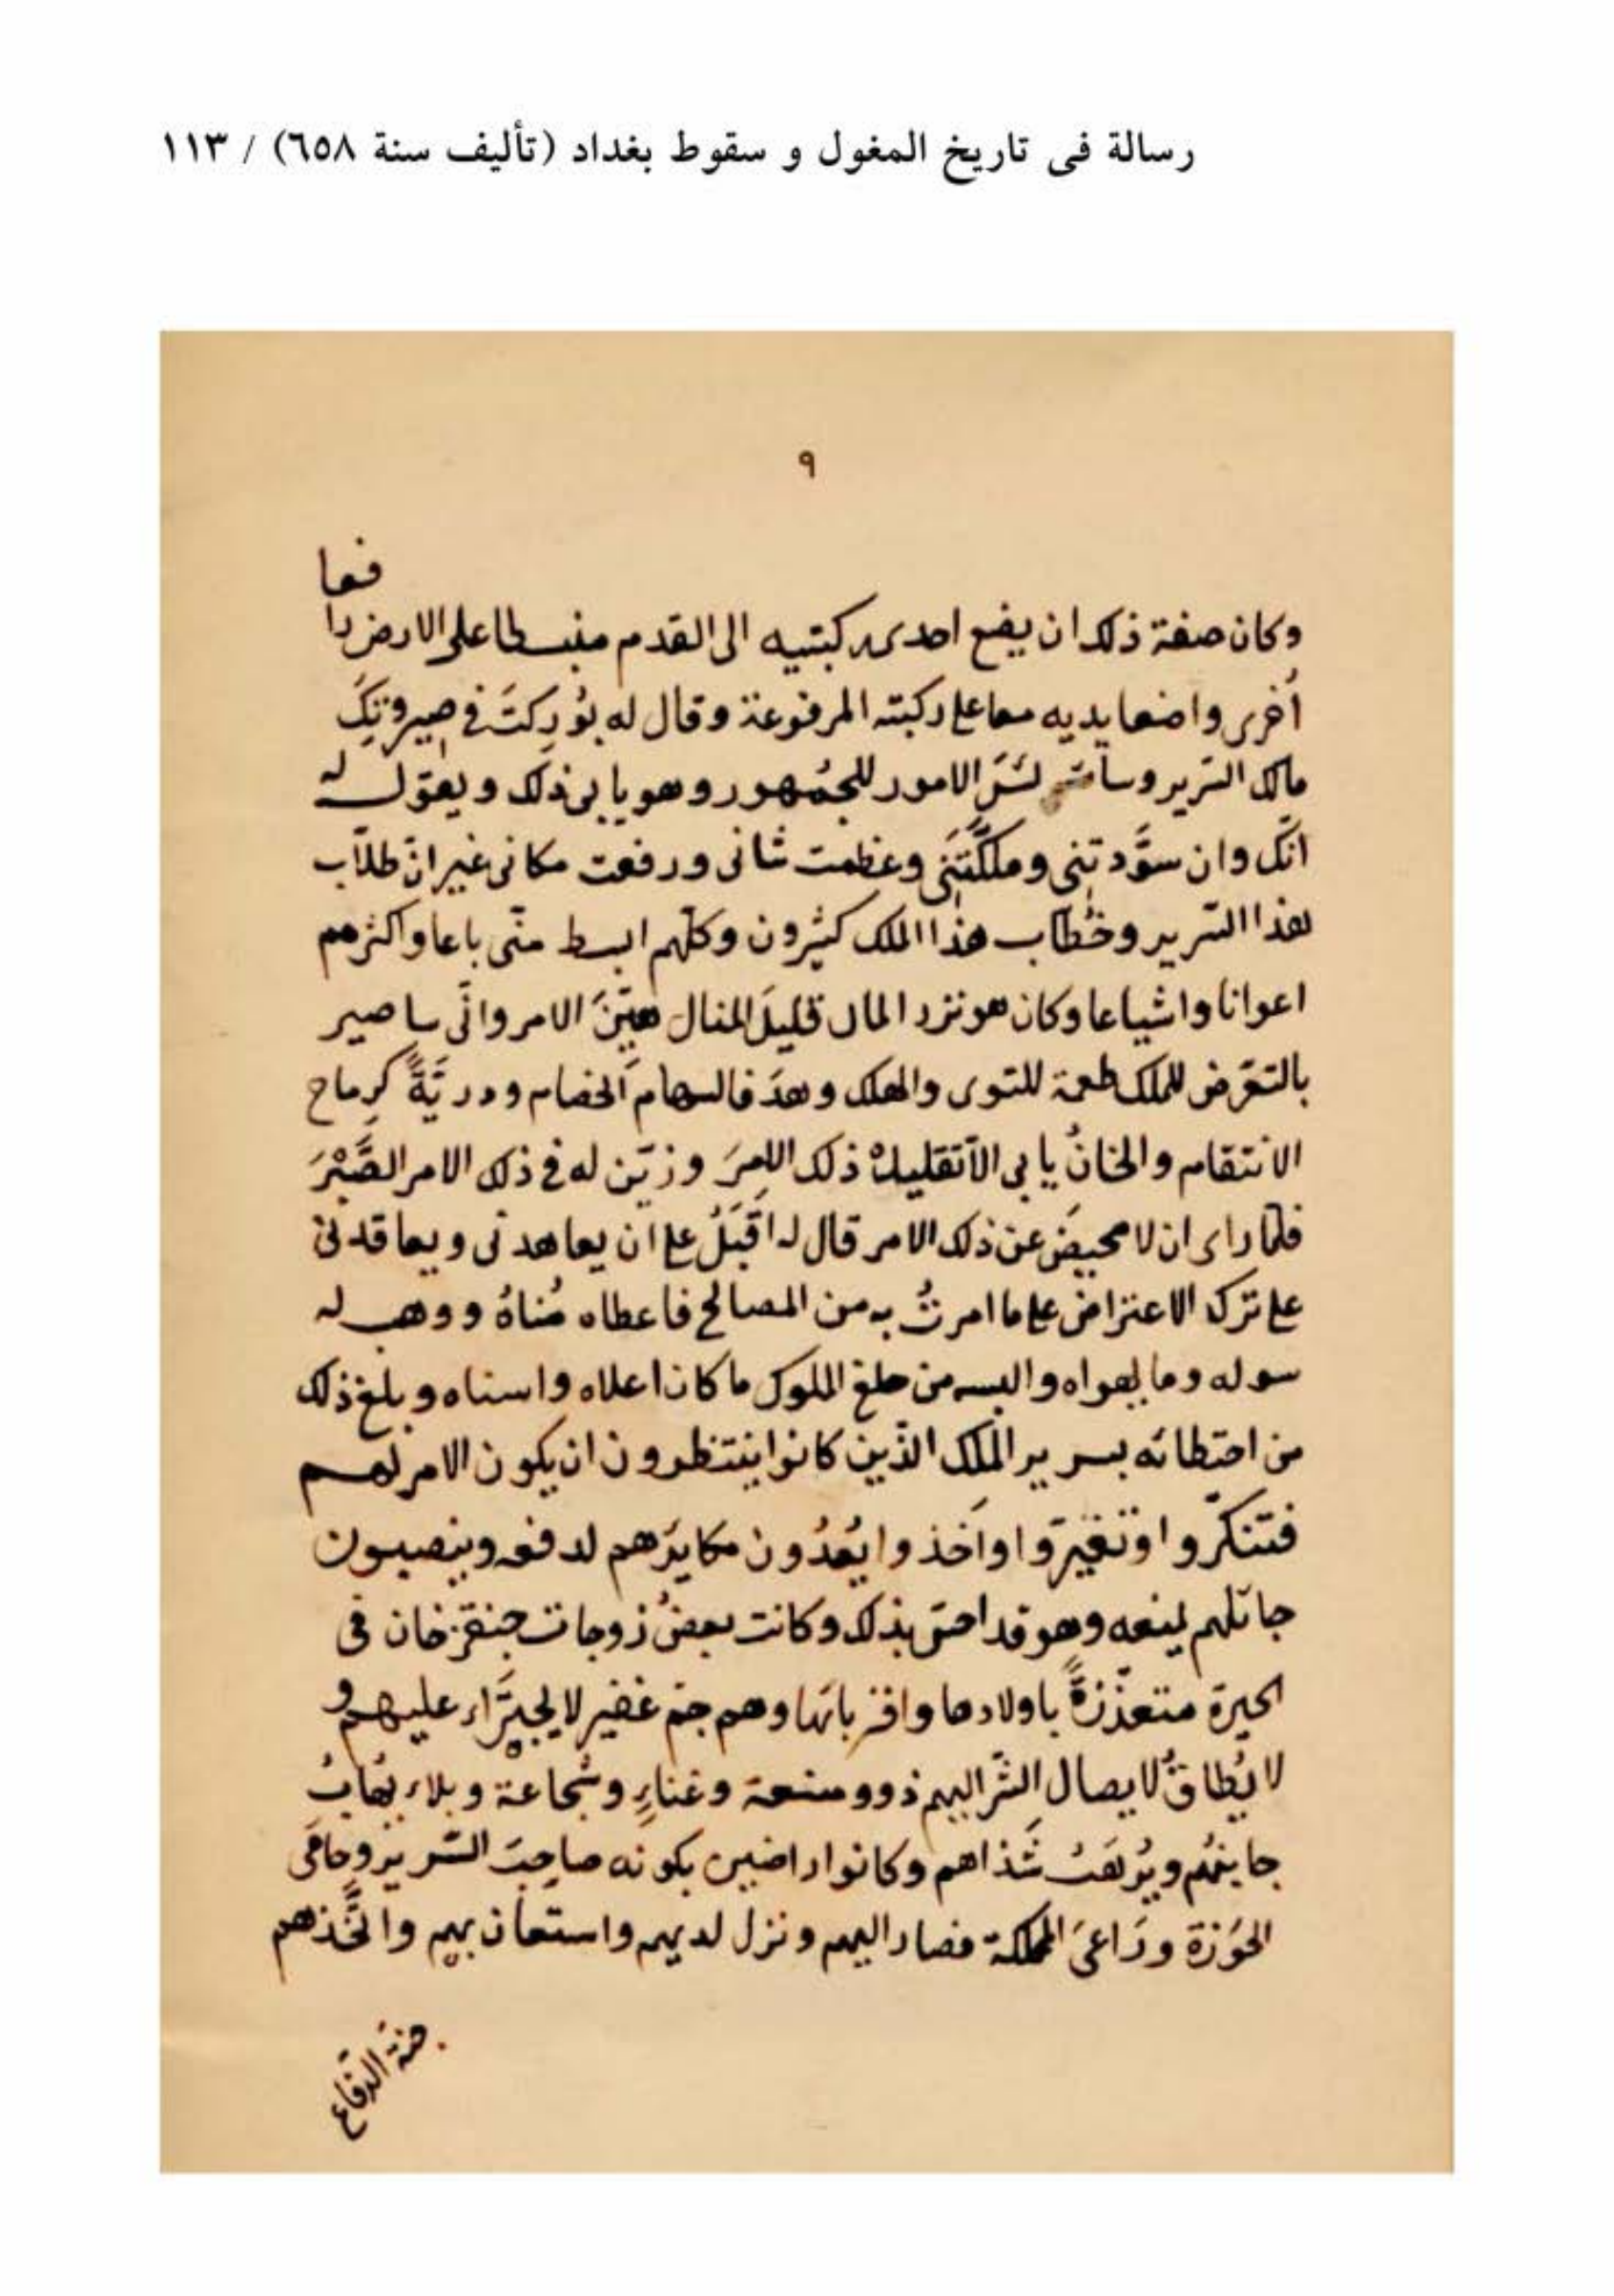 رسالة فى تاريخ المغول و سقوط بغداد (تأليف سنة ٦٥٨) / ١١٣
٩
فعا
وكان صفة ذلك ان يضع احدى ركبتيه الى القدم منبسطا على الارض را
أخرى واضعا يديه معا على ركبته المرفوعة وقال له بُورِكتَ فى صيرورتكَ
مالك السّرير وسائس لشَرّ الامور للجُمهور وهو يابى ذلك ويقول له
انّك وان سوَّدتنى وملّكتَنى وعظمت شانى ورفعت مكانى غير انّ طلّاب
هذا السّرير وخُطّاب هذا الملك كثيرون وكلّهم ابسط منّى باعا واكثرهم
اعوانا واشياعا وكان هو نزر المال قليلَ المنال هيّنَ الامر وانّى ساصير
بالتعرّض للملك طعمة للتوى والهلك وهدفا لسهام الخصام ودريّةً لرماح
الانتقام والخانُ يابى الّا تقليدَهُ ذلك الامرَ وزيّن له فى ذلك الامر الصَّبْرَ
فلمّا راى ان لا محيصَ عن ذلك الامر قال له اَقْبَلُ على ان يعاهدنى ويعاقدنى
على ترك الاعتراض على ما امرتُ به من المصالح فاعطاه مُناهُ ووهب له
سوله وما يهواه والبسه من خلع الملوك ما كان اعلاه واسناه وبلغ ذلك
من احتظائه بسرير المُلك الّذين كانوا ينتظرون ان يكون الامر لهم
فتنكّروا وتغيّروا واَخذوا يُعِدُّون مكايدَهم لدفعه وينصبون
حبائلهم لمنعه وهو قد احسّ بذلك وكانت بعضُ زوجات جنقزخان فى
الحيرة متعذّزةً باولادها واقربائها وهم جمّ غفير لا يجترَاء عليهم و
لا يُطاقُ لايصال الشّرّ اليهم ذوو منعة وغناءٍ وشُجاعة وبلاء يُهابُ
جانبهُم ويُرهَبُ شَذاهم وكانوا راضين بكونه صاحبَ السّرير وحامَى
الحَوْزة ورَاعىَ المملكة فصار اليهم ونزل لديهم واستعان بهم واتّخذهم
جنة الدّفاع